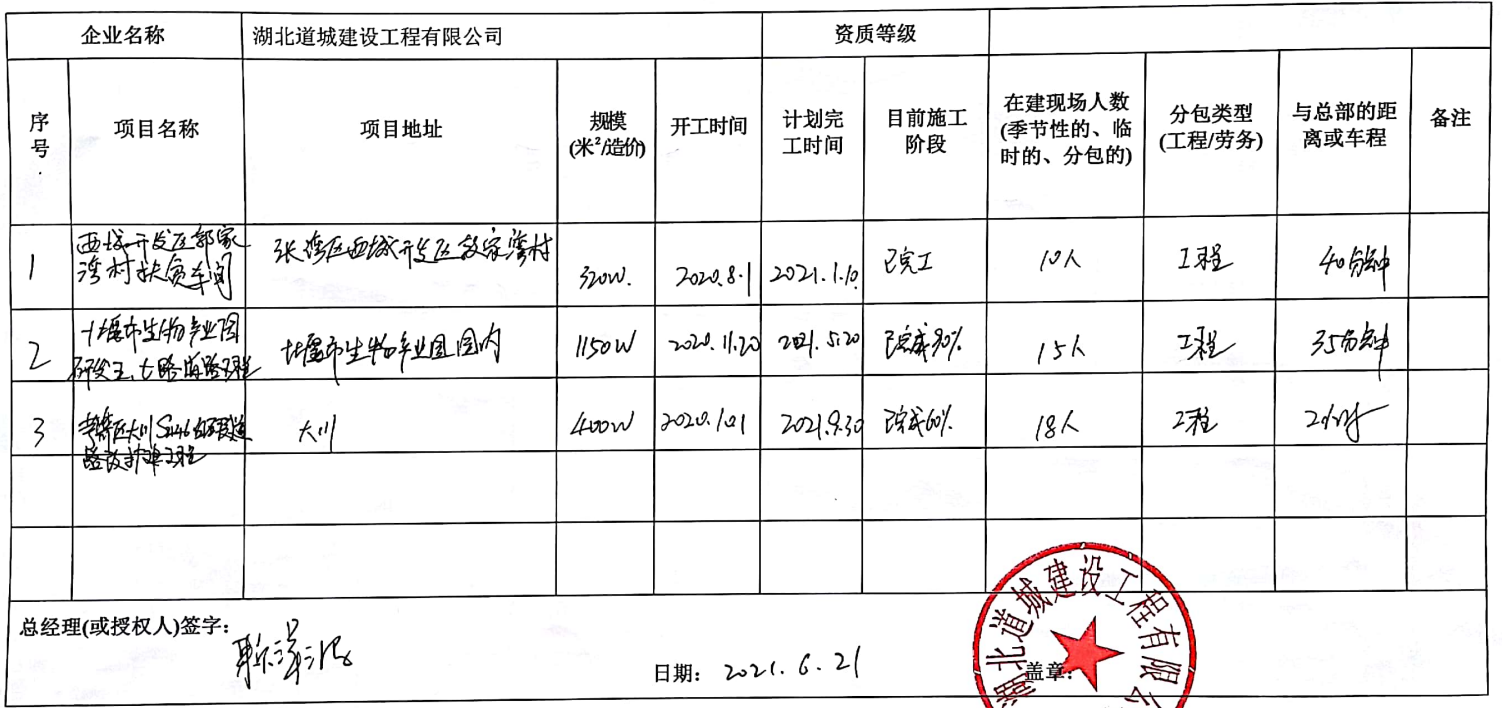 企业名称 湖北道城建设工程有限公司 资质等级
序号 项目名称 项目地址 规模(米²/造价) 开工时间 计划完工时间 目前施工阶段 在建现场人数(季节性的、临时的、分包的) 分包类型(工程/劳务) 与总部的距离或车程 备注
1 西城开发区郭家湾村扶贫车间 张湾区西城开发区 湾村 320W. 2020.8.1 2021.1.10. 已完工 10人 工程 40分钟
2 十堰市生物产业园研发王、七路 十堰市生物产业园园内 1150W 2020.11.20 2021.5.20 已完成90% 15人 工程 35分钟
3 大川 大川 400W 2020.10.1 2021.9.30 已完成60% 18人 工程 2小时
总经理(或授权人)签字:
日期: 2021.6.21
盖章:
湖北道城建设工程有限公